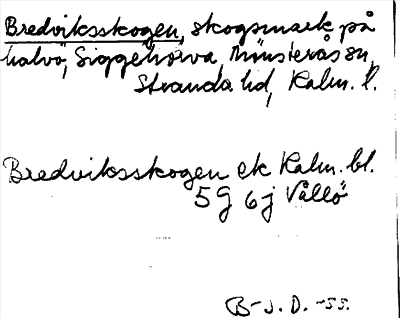 Bredviksskogen, skogsmark på
halvö, Siggehorva, Mönsterås sn,
Stranda hd, Kalm. l.
Bredviksskogen ek Kalm. bl.
5 G 6 j Vållö
B-J. D. -55.